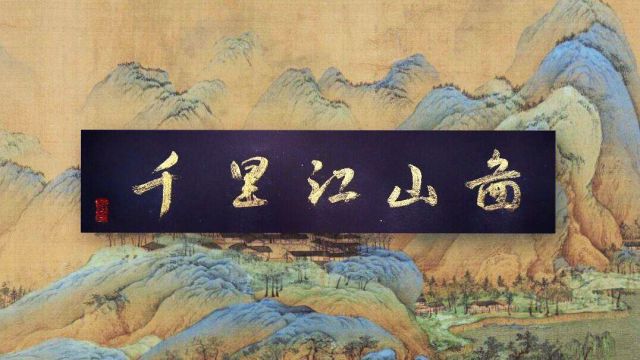 千里江山图